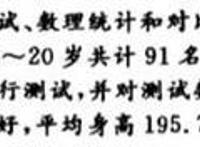 试、数理统计和对
～20岁共计91名
行测试，并对测试
好，平均身高195.